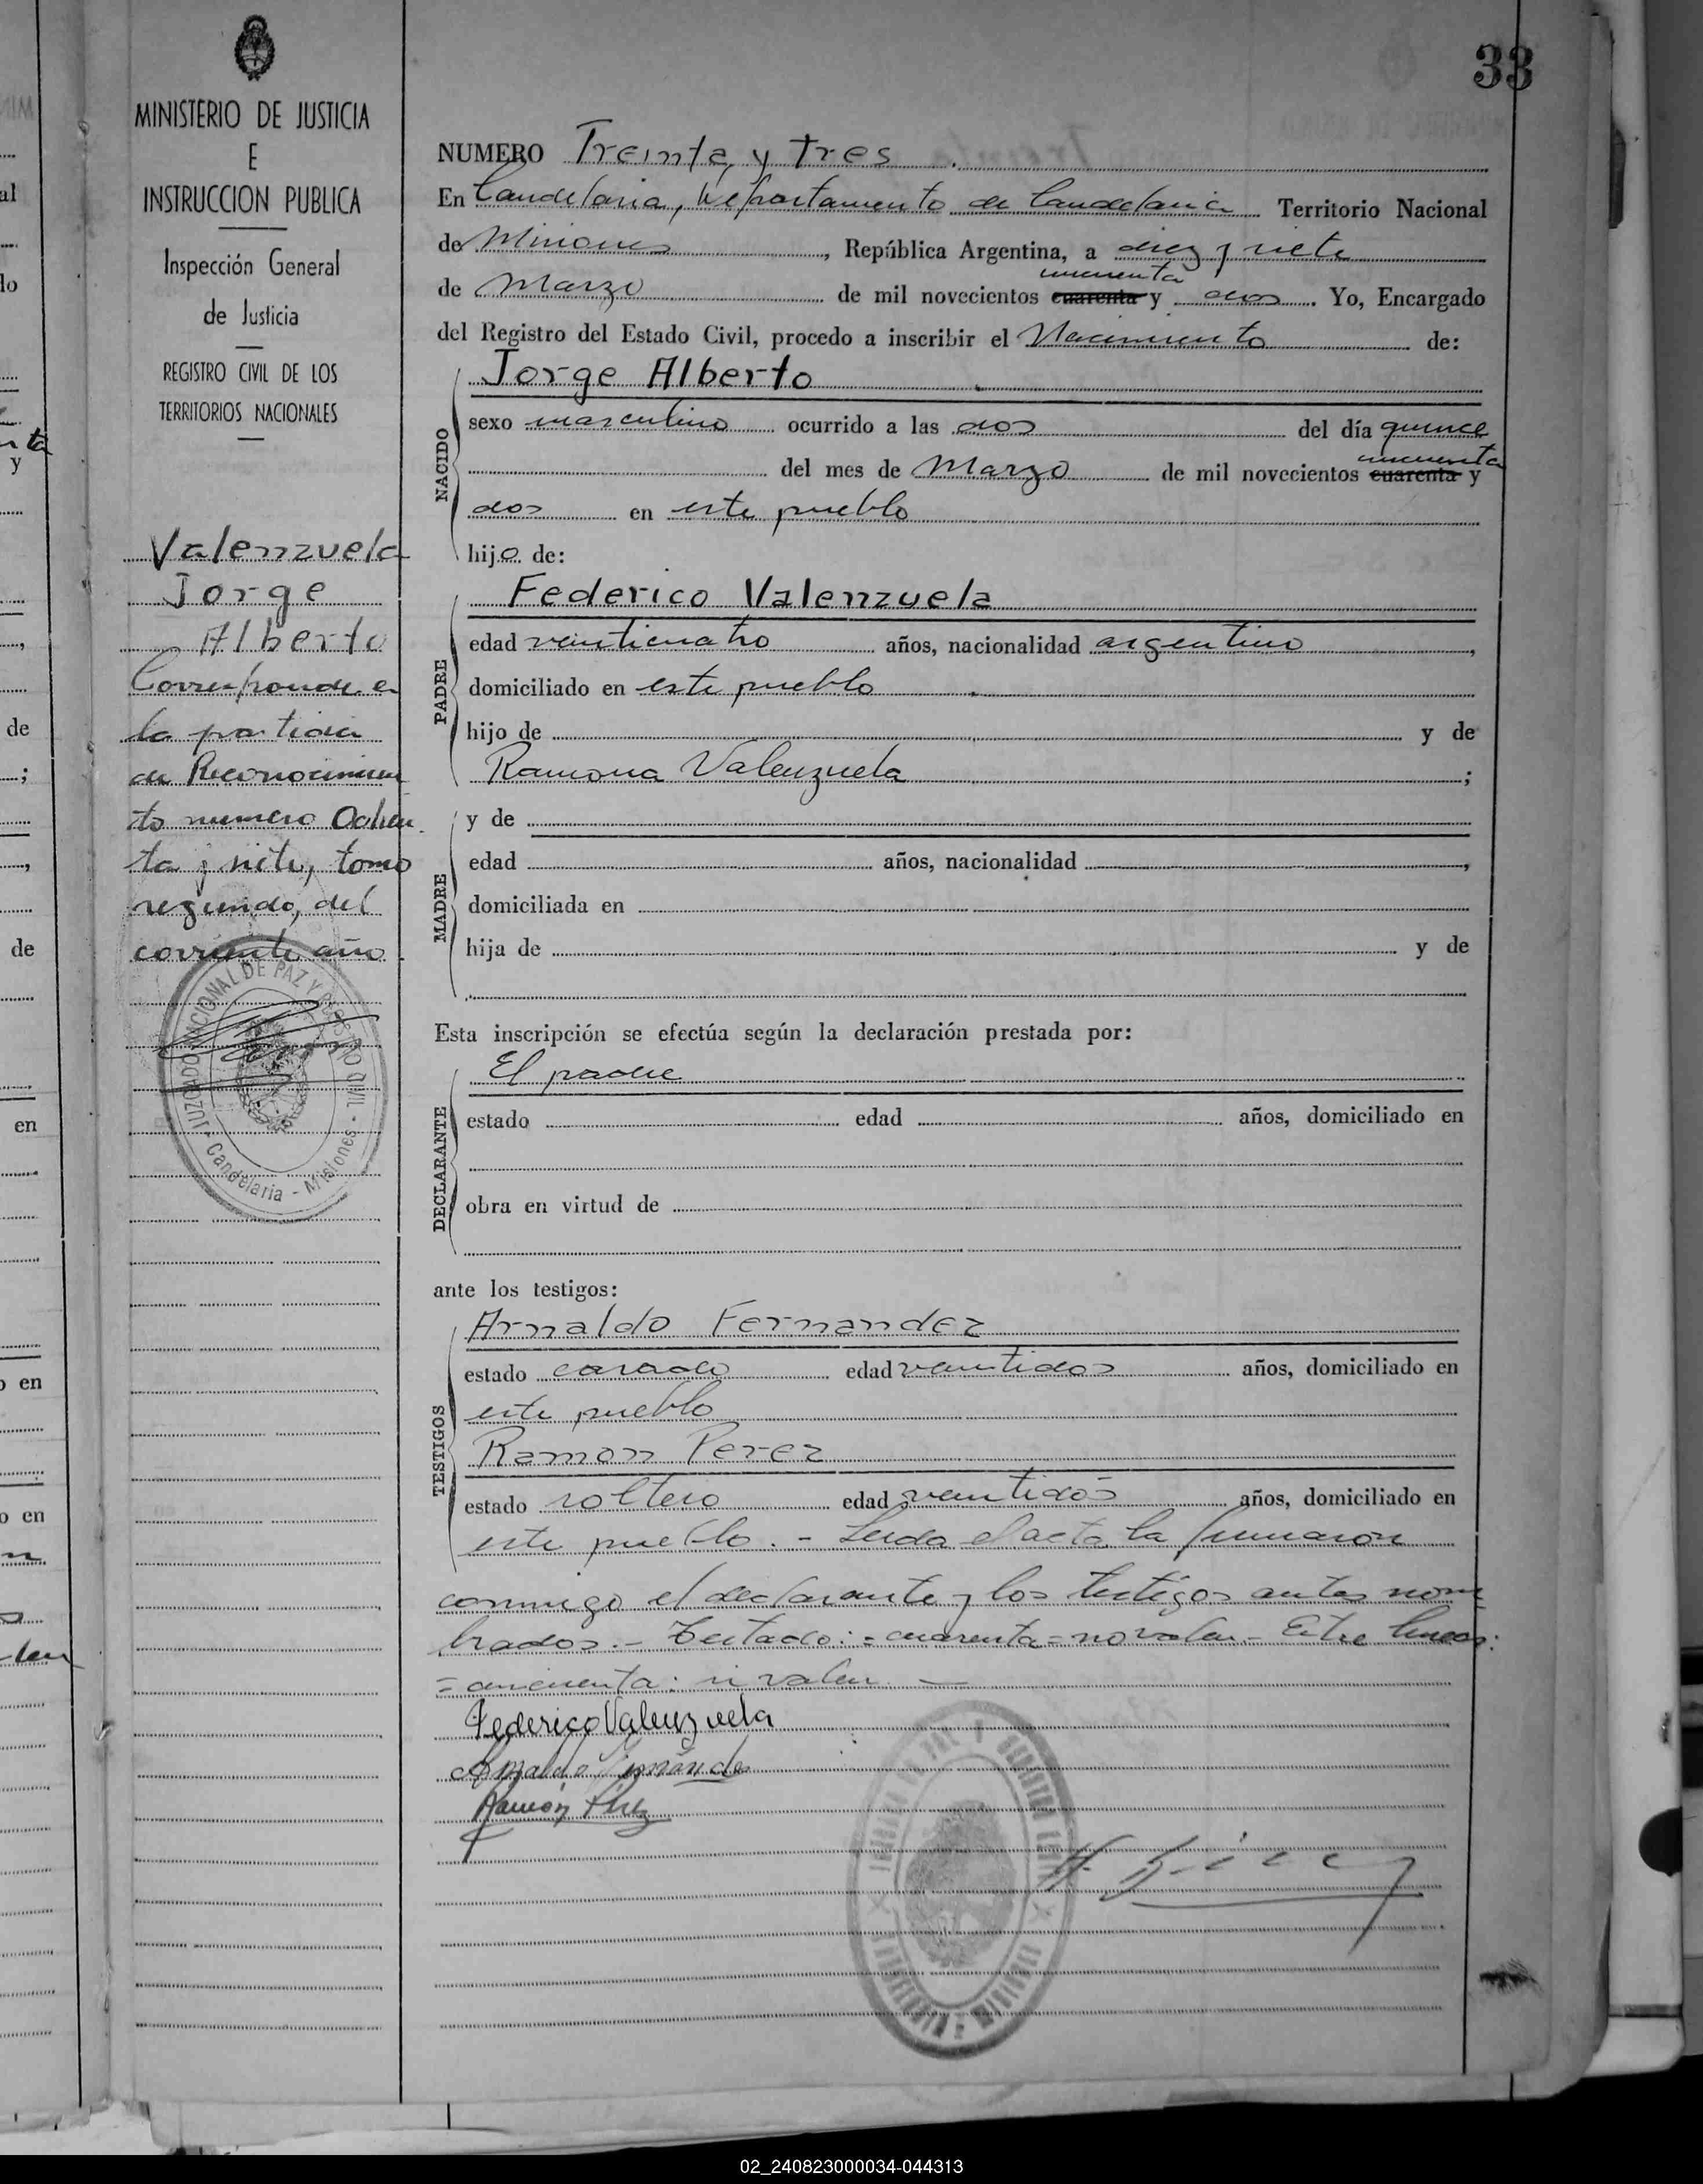 33
MINISTERIO DE JUSTICIA
E
INSTRUCCION PUBLICA
Inspección General
de Justicia
REGISTRO CIVIL DE LOS
TERRITORIOS NACIONALES
Valenzuela
Jorge
Alberto
Corresponde a
la partida
de Reconocimien
to numero Ochen
ta y siete, tomo
segundo, del
corriente año.
JUZGADO NACIONAL DE PAZ Y REGISTRO CIVIL - Candelaria - Misiones -
NUMERO Treinta y tres
En Candelaria, Departamento de Candelaria Territorio Nacional
de Misiones, República Argentina, a diez y siete
cincuenta
de Marzo de mil novecientos cuarenta y dos. Yo, Encargado
del Registro del Estado Civil, procedo a inscribir el Nacimiento de:
NACIDO
Jorge Alberto
sexo masculino ocurrido a las dos del día quince
cincuenta
del mes de Marzo de mil novecientos cuarenta y
dos en este pueblo
hijo de:
PADRE
Federico Valenzuela
edad veinticuatro años, nacionalidad argentino,
domiciliado en este pueblo
hijo de y de
Ramona Valenzuela;
MADRE
y de
edad años, nacionalidad,
domiciliada en
hija de y de
Esta inscripción se efectúa según la declaración prestada por:
DECLARANTE
El padre
estado edad años, domiciliado en
obra en virtud de
ante los testigos:
TESTIGOS
Arnaldo Fernandez
estado casado edad veintidos años, domiciliado en
este pueblo
Ramon Perez
estado soltero edad veintidós años, domiciliado en
este pueblo. - Leida el acta la firmaron
conmigo el declarante y los testigos antes nom
brados. - Testado: = cuarenta = no valen - Entre lineas:
= cincuenta: si valen. —
Federico Valenzuela
Ramón Pérez
02_240823000034-044313